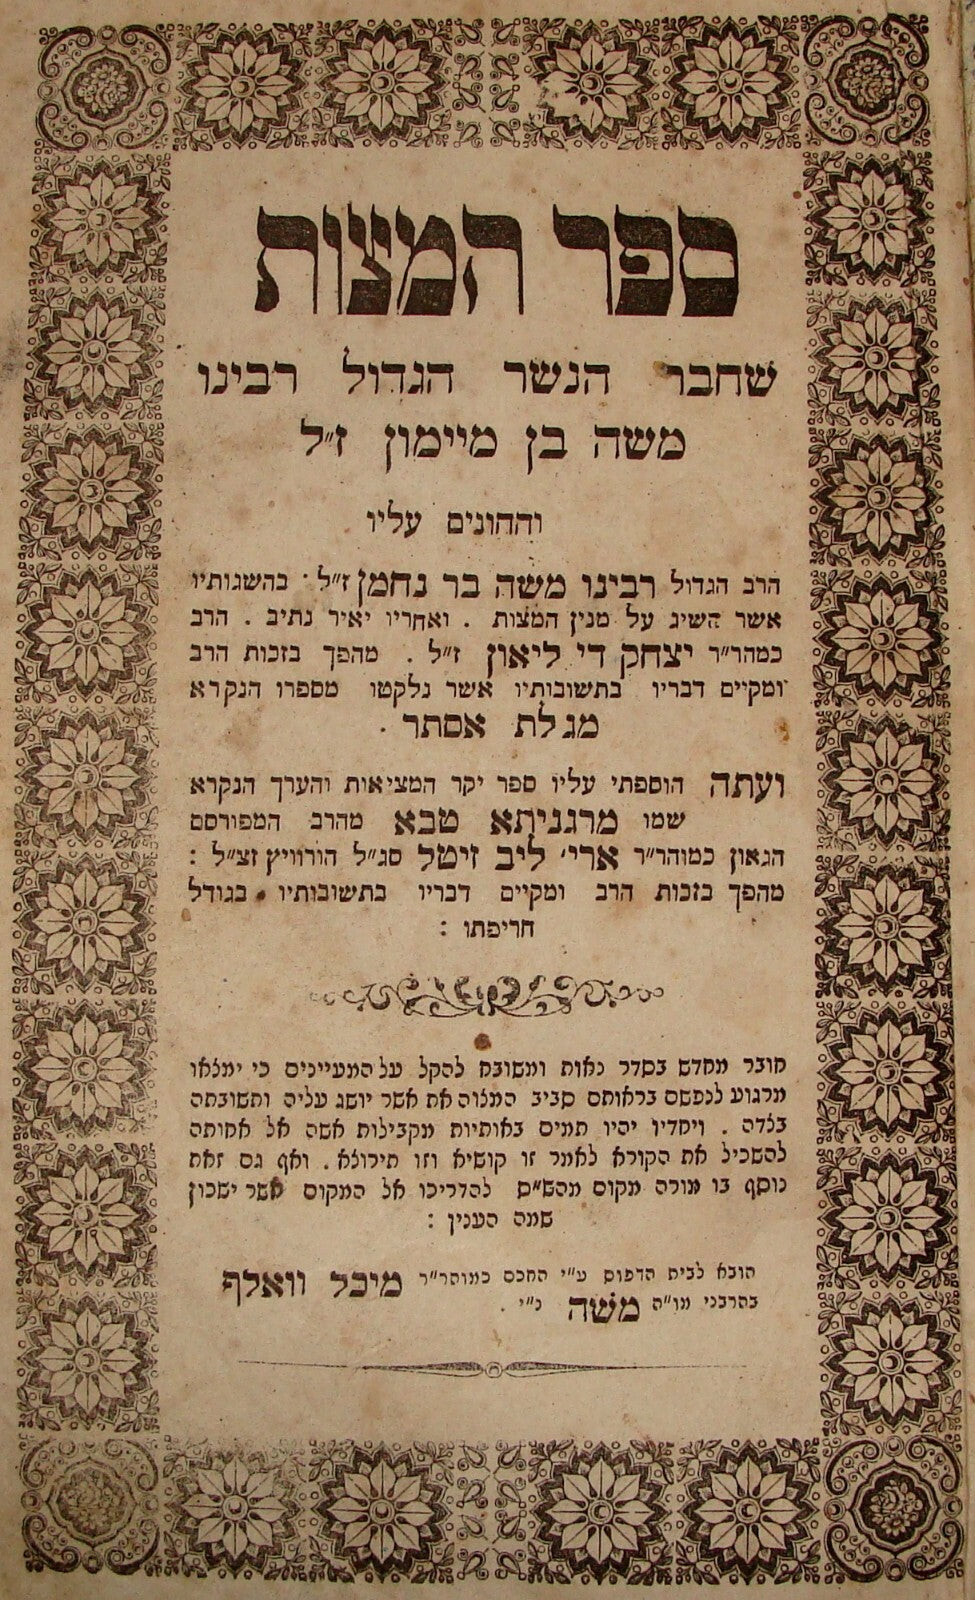 ספר המצות
שחבר הנשר הגדול רבינו
משה בן מיימון ז״ל
והחונים עליו
הרב הגדול רבינו משה בר נחמן ז״ל . בהשגותיו
אשר השיג על מנין המצות . ואחריו יאיר נתיב . הרב
כמהר״ר יצחק די ליאון ז״ל . מהפך בזכות הרב
ומקיים דבריו בתשובותיו אשר נלקטו מספרו הנקרא
מגלת אסתר .
ועתה הוספתי עליו ספר יקר המציאות והערך הנקרא
שמו מרגניתא טבא מהרב המפורסם
הגאון כמוהר״ר ארי׳ ליב זיטל סג״ל הורוויץ זצ״ל :
מהפך בזכות הרב ומקיים דבריו בתשובותיו . בגודל
חריפתו :
מובר מחדש בסדר נאות ומשובח להקל על המעיינים כי ימצאו
מרגוע לנפשם בראותם סביב המצוה את אשר יושג עליה ותשובתה
בצדה . ויחדיו יהיו תמים באותיות מקבילות אשה אל אחותה
להשכיל את הקורא לאמר זו קושיא וזו תירוצא . ואף גם זאת
נוסף בו מורה מקום מהש״ס להדריכו אל המקום אשר ישכון
שמה הענין :
הובא לבית הדפוס ע״י החכם כמוהר״ר מיכל וואלף
בהרבני מו״ה משה נ״י .